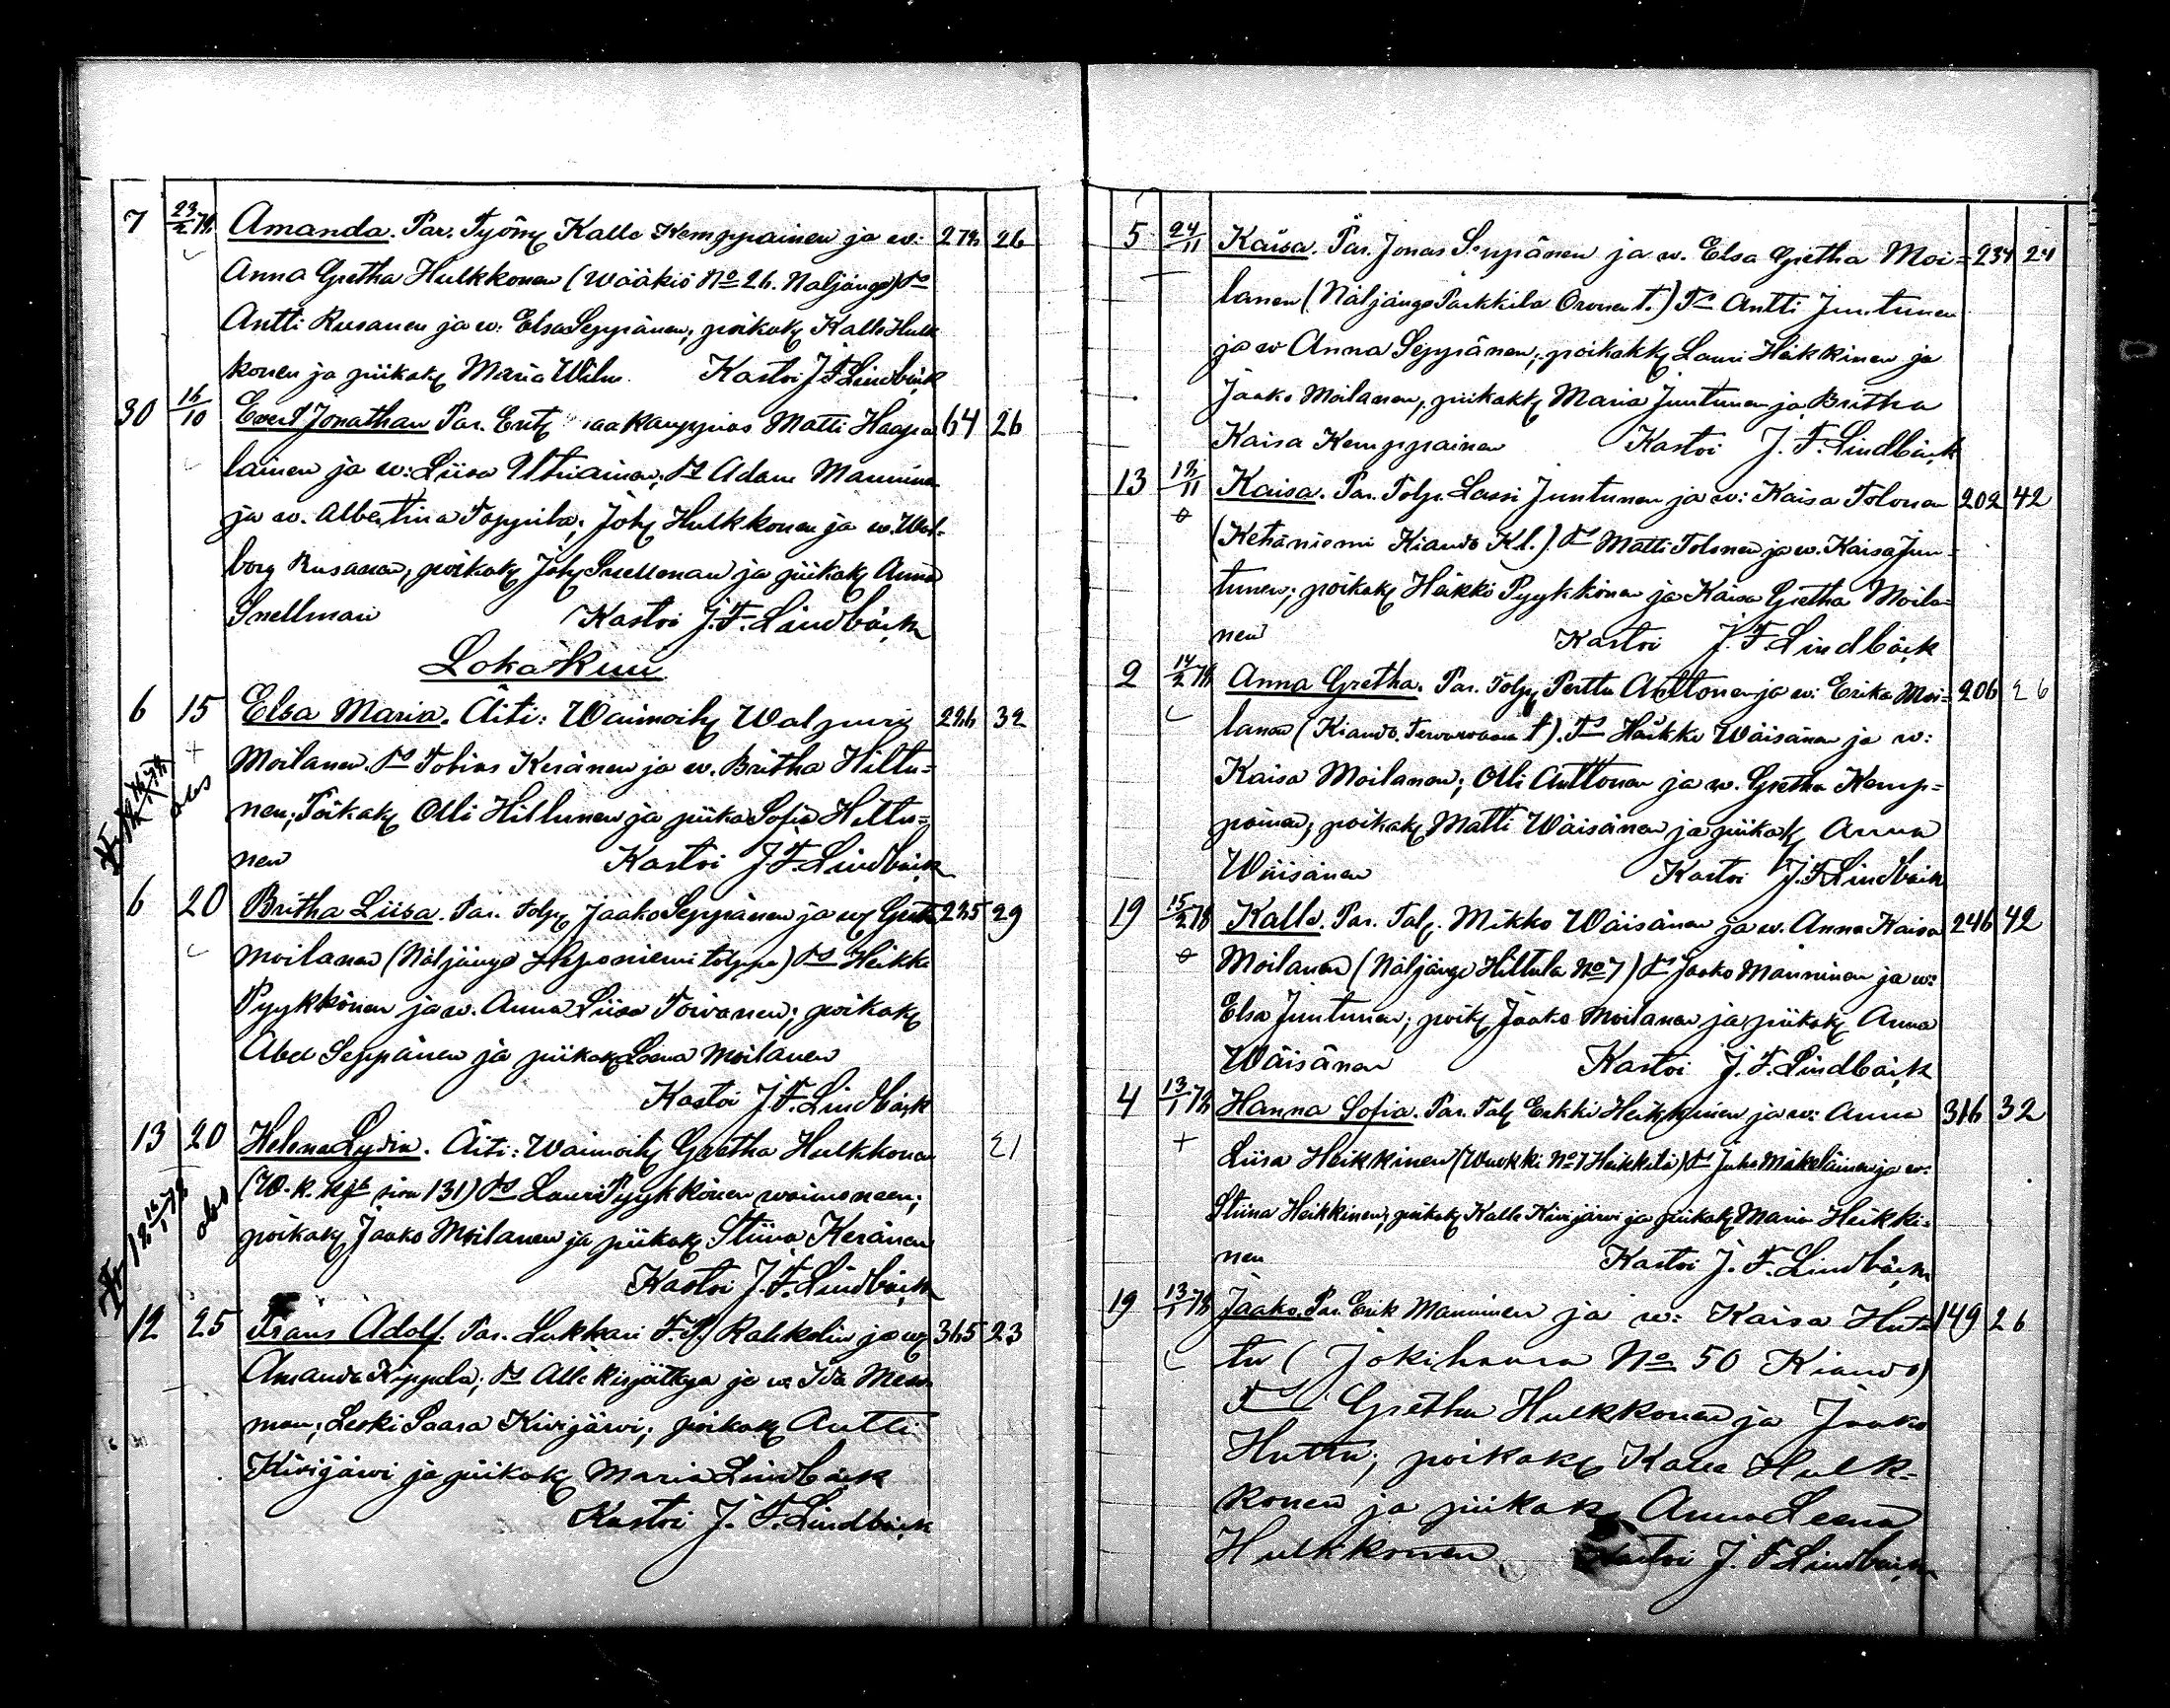 7 23/2 78 Amanda. Par. Työm Kalle Kemppainen ja w: 278 26
Anna Gretha Hulkkonen (Wääkiö No 26. Näljänge) Ts
Antti Rusanen ja w: Elsa Seppänen, poikak Kalle Hulk
konen ja piikak Maria Wilm Kastoi J F Lindbäck
30 16/10 Evert Jonathan Par. Entz maakauppias Matti Haapa 64 26
lainen ja w: Liisa Uthiainen, Ts Adam Manninen
ja w. Albertina Toppila, Joh Hulkkonen ja w. Wal-
borg Rusanen, poikak Joh Snellman ja piikak Anna
Snellman Kastoi J. F. Lindbäck
Lokakuu
6 15 Elsa Maria. Äiti: Waimoih Walpuri 226 32
Moilanen. Ts Tobias Keränen ja w. Britha Hiltu-
nen; Poikak Olli Hiltunen ja piika Sofia Hiltu-
obs
nen Kastoi J. F. Lindbäck
6 20 Britha Liisa. Par. Tolp Jaako Seppänen ja w Greta 235 29
Moilanen (Näljänge Heponiemi tolppa) Ts Heikki
Pyykkönen ja w. Anna Liisa Toivanen; poikak
Abel Seppänen ja piikak Leena Moilanen
Kastoi J. F. Lindbäck
13 20 Helena Lydia. Äiti: Waimoih Gretha Hulkkonen 21
(W. k. kja sivu 131) Ts Lauri Pyykkönen waimoneen;
obs
poikak Jaako Moilanen ja piikak Stiina Keränen
Kastoi J. F. Lindbäck
12 25 Frans Adolf. Par. Lukkari F. F. Rahkolin ja w 365 23
Amanda Kippula; Ts Alli kirjoittaja ja w. Ida Mess
man; Leski Saara Kiwijärwi; poikak Antti
Kiwijärwi ja piikak Maria Lindbäck
Kastoi J. F. Lindbäck
5 24/11 Kaisa. Par. Jonas Seppänen ja w. Elsa Gretha Moi- 234 21
lanen (Näljänge Parkkila Oronen t.) Ts Antti Juntunen
ja w Anna Seppänen, poikakk Lauri Heikkinen ja
Jaako Moilanen, piikakk Maria Juntunen ja Britha
Kaisa Kemppainen Kastoi J. F. Lindbäck
13 18/11 Kaisa. Par. Tolp. Lassi Juntunen ja w: Kaisa Tolonen 202 42
(Kehäniemi Kiando Kl.) Ts Matti Tolonen ja w. Kaisa Jun-
tunen; poikak Heikki Pyykkönen ja Kaisa Gretha Moila-
nen Kastoi J. F. Lindbäck
2 14/2 78 Anna Gretha. Par. Tolp Perttu Anttonen ja w: Erika Moi- 206 26
lanen (Kiando. Terwawaara t). Ts Heikki Wäisänen ja w:
Kaisa Moilanen; Olli Anttonen ja w. Gretha Kemp-
painen; poikak Matti Wäisänen ja piikak Anna
Wäisänen Kastoi J. F. Lindbäck
19 15/2 78 Kalle. Par. Tal. Mikko Wäisänen ja w. Anna Kaisa 246 42
Moilanen (Näljänge Hiltula No 7) Ts Jaako Manninen ja w:
Elsa Juntunen; poik Jaako Moilanen ja piikak Anna
Wäisänen Kastoi J. F. Lindbäck
4 13/1 78 Hanna Sofia. Par. Tal Erkki Heikkinen ja w: Anna 316 32
Liisa Heikkinen (Wuokki No 7 Heikkilä) Ts Juho Mäkeläinen ja w:
Stiina Heikkinen; poikak Kalle Kiwijärwi ja piikak Maria Heikki-
nen Kastoi J. F. Lindbäck
19 13/1 78 Jaako. Par. Erik Manninen ja w: Kaisa Hut- 149 26
tu (Jokihaara No 50 Kiando)
Ts Gretha Hulkkonen ja Jaako
Huttu; poikak Kalle Hulk-
konen ja piikak Anna Leena
Hulkkonen Kastoi J. F. Lindbäck